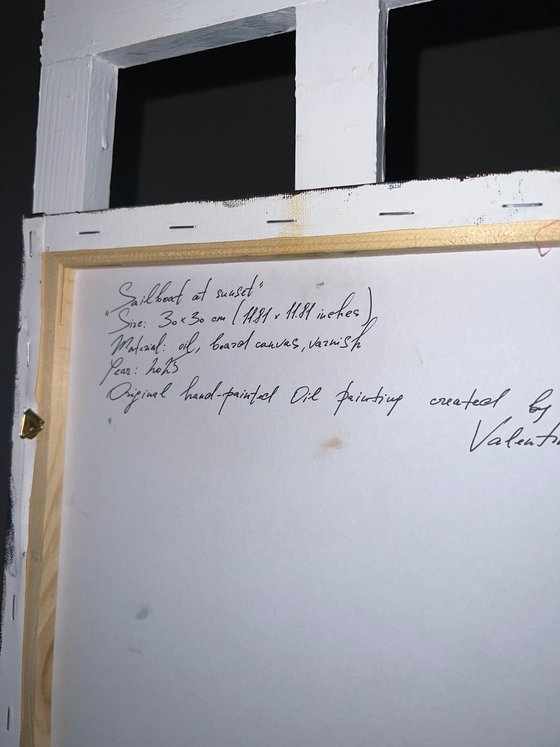 "Sailboat at sunset"
Size: 30x30 cm (11.81 x 11.81 inches)
Material: oil, board canvas, varnish
Year: 2025
Original hand-painted Oil painting created by